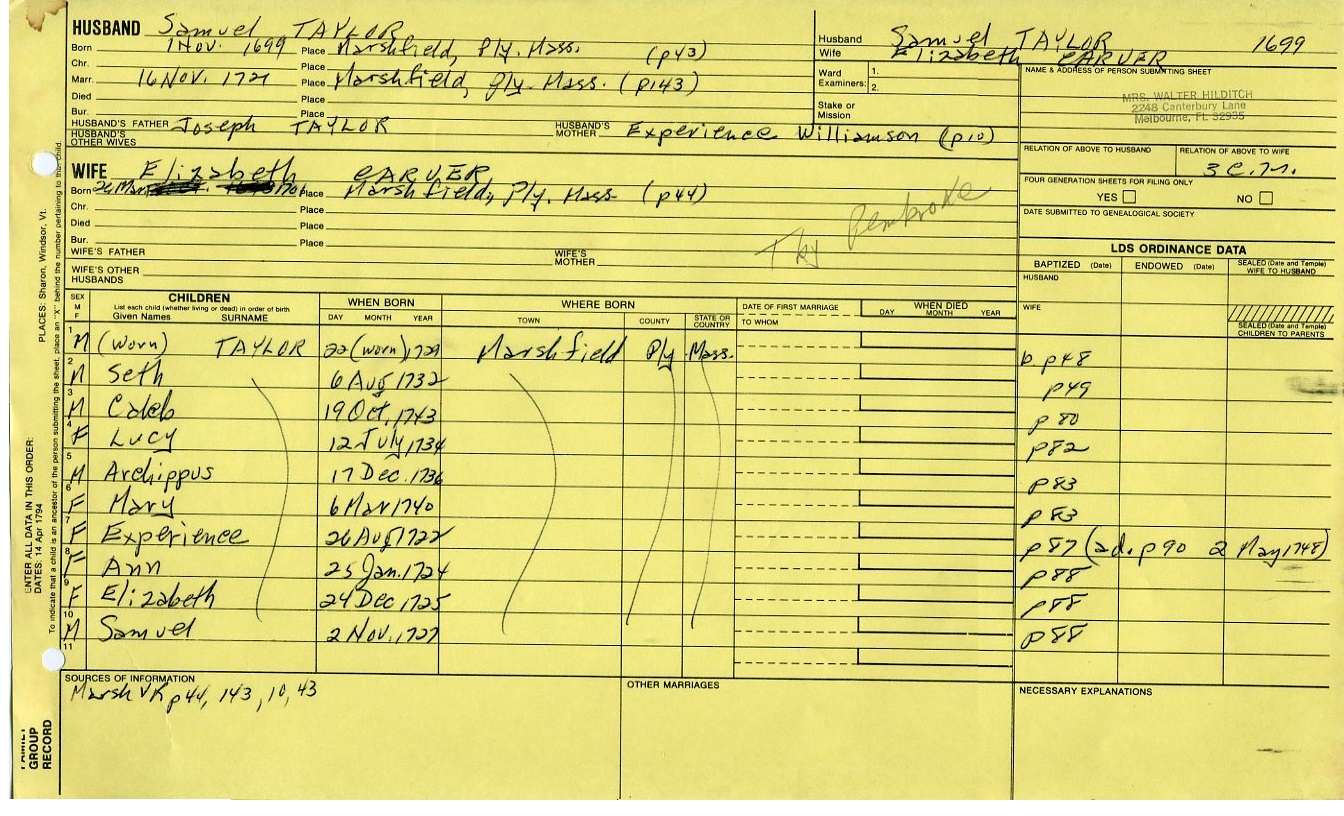 HUSBAND Samuel TAYLOR
Born 1 Nov. 1699 Place Marshfield, Ply. Mass. (p43)
Chr. Place
Marr. 16 Nov. 1721 Place Marshfield, Ply. Mass. (p143)
Died Place
Bur. Place
HUSBAND'S FATHER Joseph TAYLOR HUSBAND'S MOTHER Experience Williamson (p10)
HUSBAND'S OTHER WIVES
Husband Samuel TAYLOR 1699
Wife Elizabeth CARVER
Ward Examiners: 1.
2.
Stake or Mission
NAME & ADDRESS OF PERSON SUBMITTING SHEET
MRS. WALTER HILDITCH
2248 Canterbury Lane
Melbourne, FL 32935
RELATION OF ABOVE TO HUSBAND RELATION OF ABOVE TO WIFE
3 C.
FOUR GENERATION SHEETS FOR FILING ONLY
YES NO
DATE SUBMITTED TO GENEALOGICAL SOCIETY
WIFE Elizabeth CARVER
Born 26 Mar Place Marshfield, Ply. Mass. (p44)
Chr. Place
Died Place
Bur. Place
Pembroke
WIFE'S FATHER WIFE'S MOTHER
WIFE'S OTHER HUSBANDS
LDS ORDINANCE DATA
BAPTIZED (Date) ENDOWED (Date) SEALED (Date and Temple) WIFE TO HUSBAND
HUSBAND
WIFE
SEALED (Date and Temple) CHILDREN TO PARENTS
SEX M F
CHILDREN
List each child (whether living or dead) in order of birth
Given Names SURNAME
WHEN BORN
DAY MONTH YEAR
WHERE BORN
TOWN COUNTY STATE OR COUNTRY
DATE OF FIRST MARRIAGE
TO WHOM
WHEN DIED
DAY MONTH YEAR
1 M (worn) TAYLOR 22 (worn) 1729 Marshfield Ply Mass. b p48
2 M Seth 6 Aug 1732 p49
3 M Caleb 19 Oct, 1743 p80
4 F Lucy 12 July, 1734 p82
5 M Archippus 17 Dec. 1736 p83
6 F Mary 6 Mar 1740 p83
7 F Experience 26 Aug 1722 p87 (ad. p90 2 May 1748)
8 F Ann 25 Jan. 1724 p88
9 F Elizabeth 24 Dec, 1725 p88
10 M Samuel 2 Nov. 1727 p88
11
SOURCES OF INFORMATION
Marsh VR p44, 143, 10, 43
OTHER MARRIAGES
NECESSARY EXPLANATIONS
ENTER ALL DATA IN THIS ORDER:
DATES: 14 Apr 1794
PLACES: Sharon, Windsor, Vt.
To indicate that a child is an ancestor of the person submitting the sheet, place an "X" behind the number pertaining to that child.
FAMILY GROUP RECORD